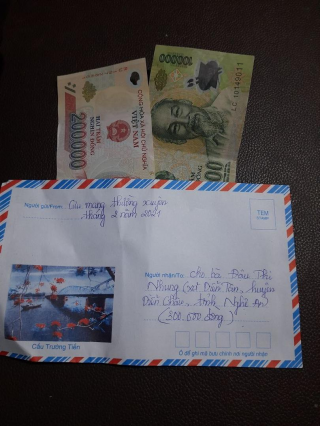 200000
HAI TRĂM
NGHÌN ĐỒNG
CỘNG HÒA XÃ HỘI CHỦ NGHĨA
VIỆT NAM
100000
Người gửi/From:
tháng 2 năm 2021
TEM
Người nhận/To: cho bà Đậu Thị
Nhung (xã Diễn Tân, huyện
Diễn Châu, tỉnh Nghệ An
(300.000 đồng)
Cầu Trường Tiền
Ô để ghi mã bưu chính nơi người nhận